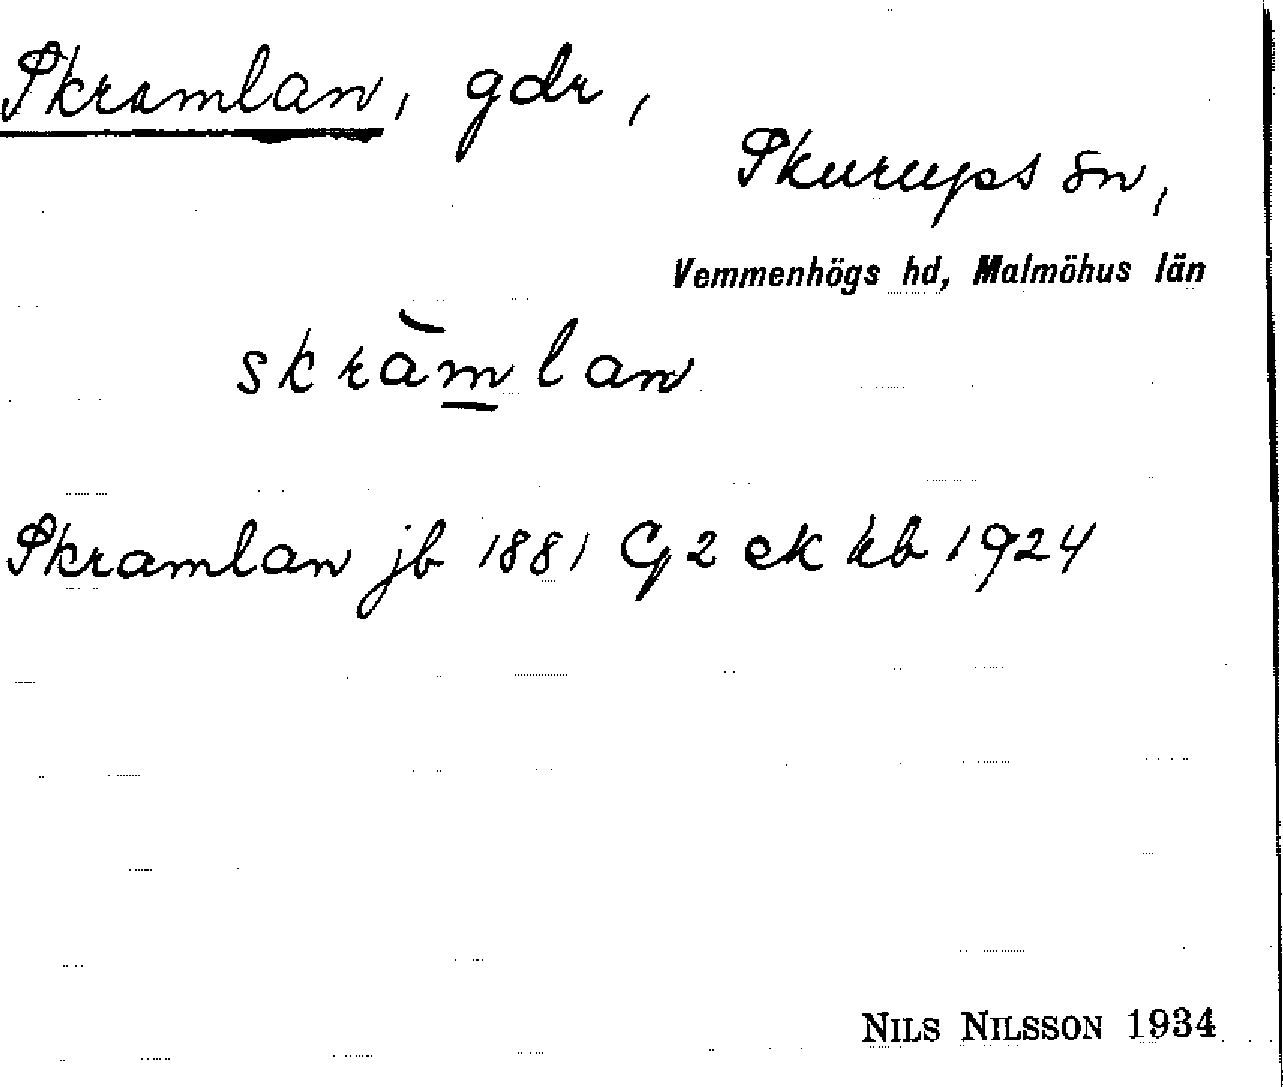 Skramlan, gdr,
Skurups sn,
Vemmenhögs hd, Malmöhus län
skràm̲lan
Skramlan jb 1881 G2 ek kb 1924
NILS NILSSON 1934